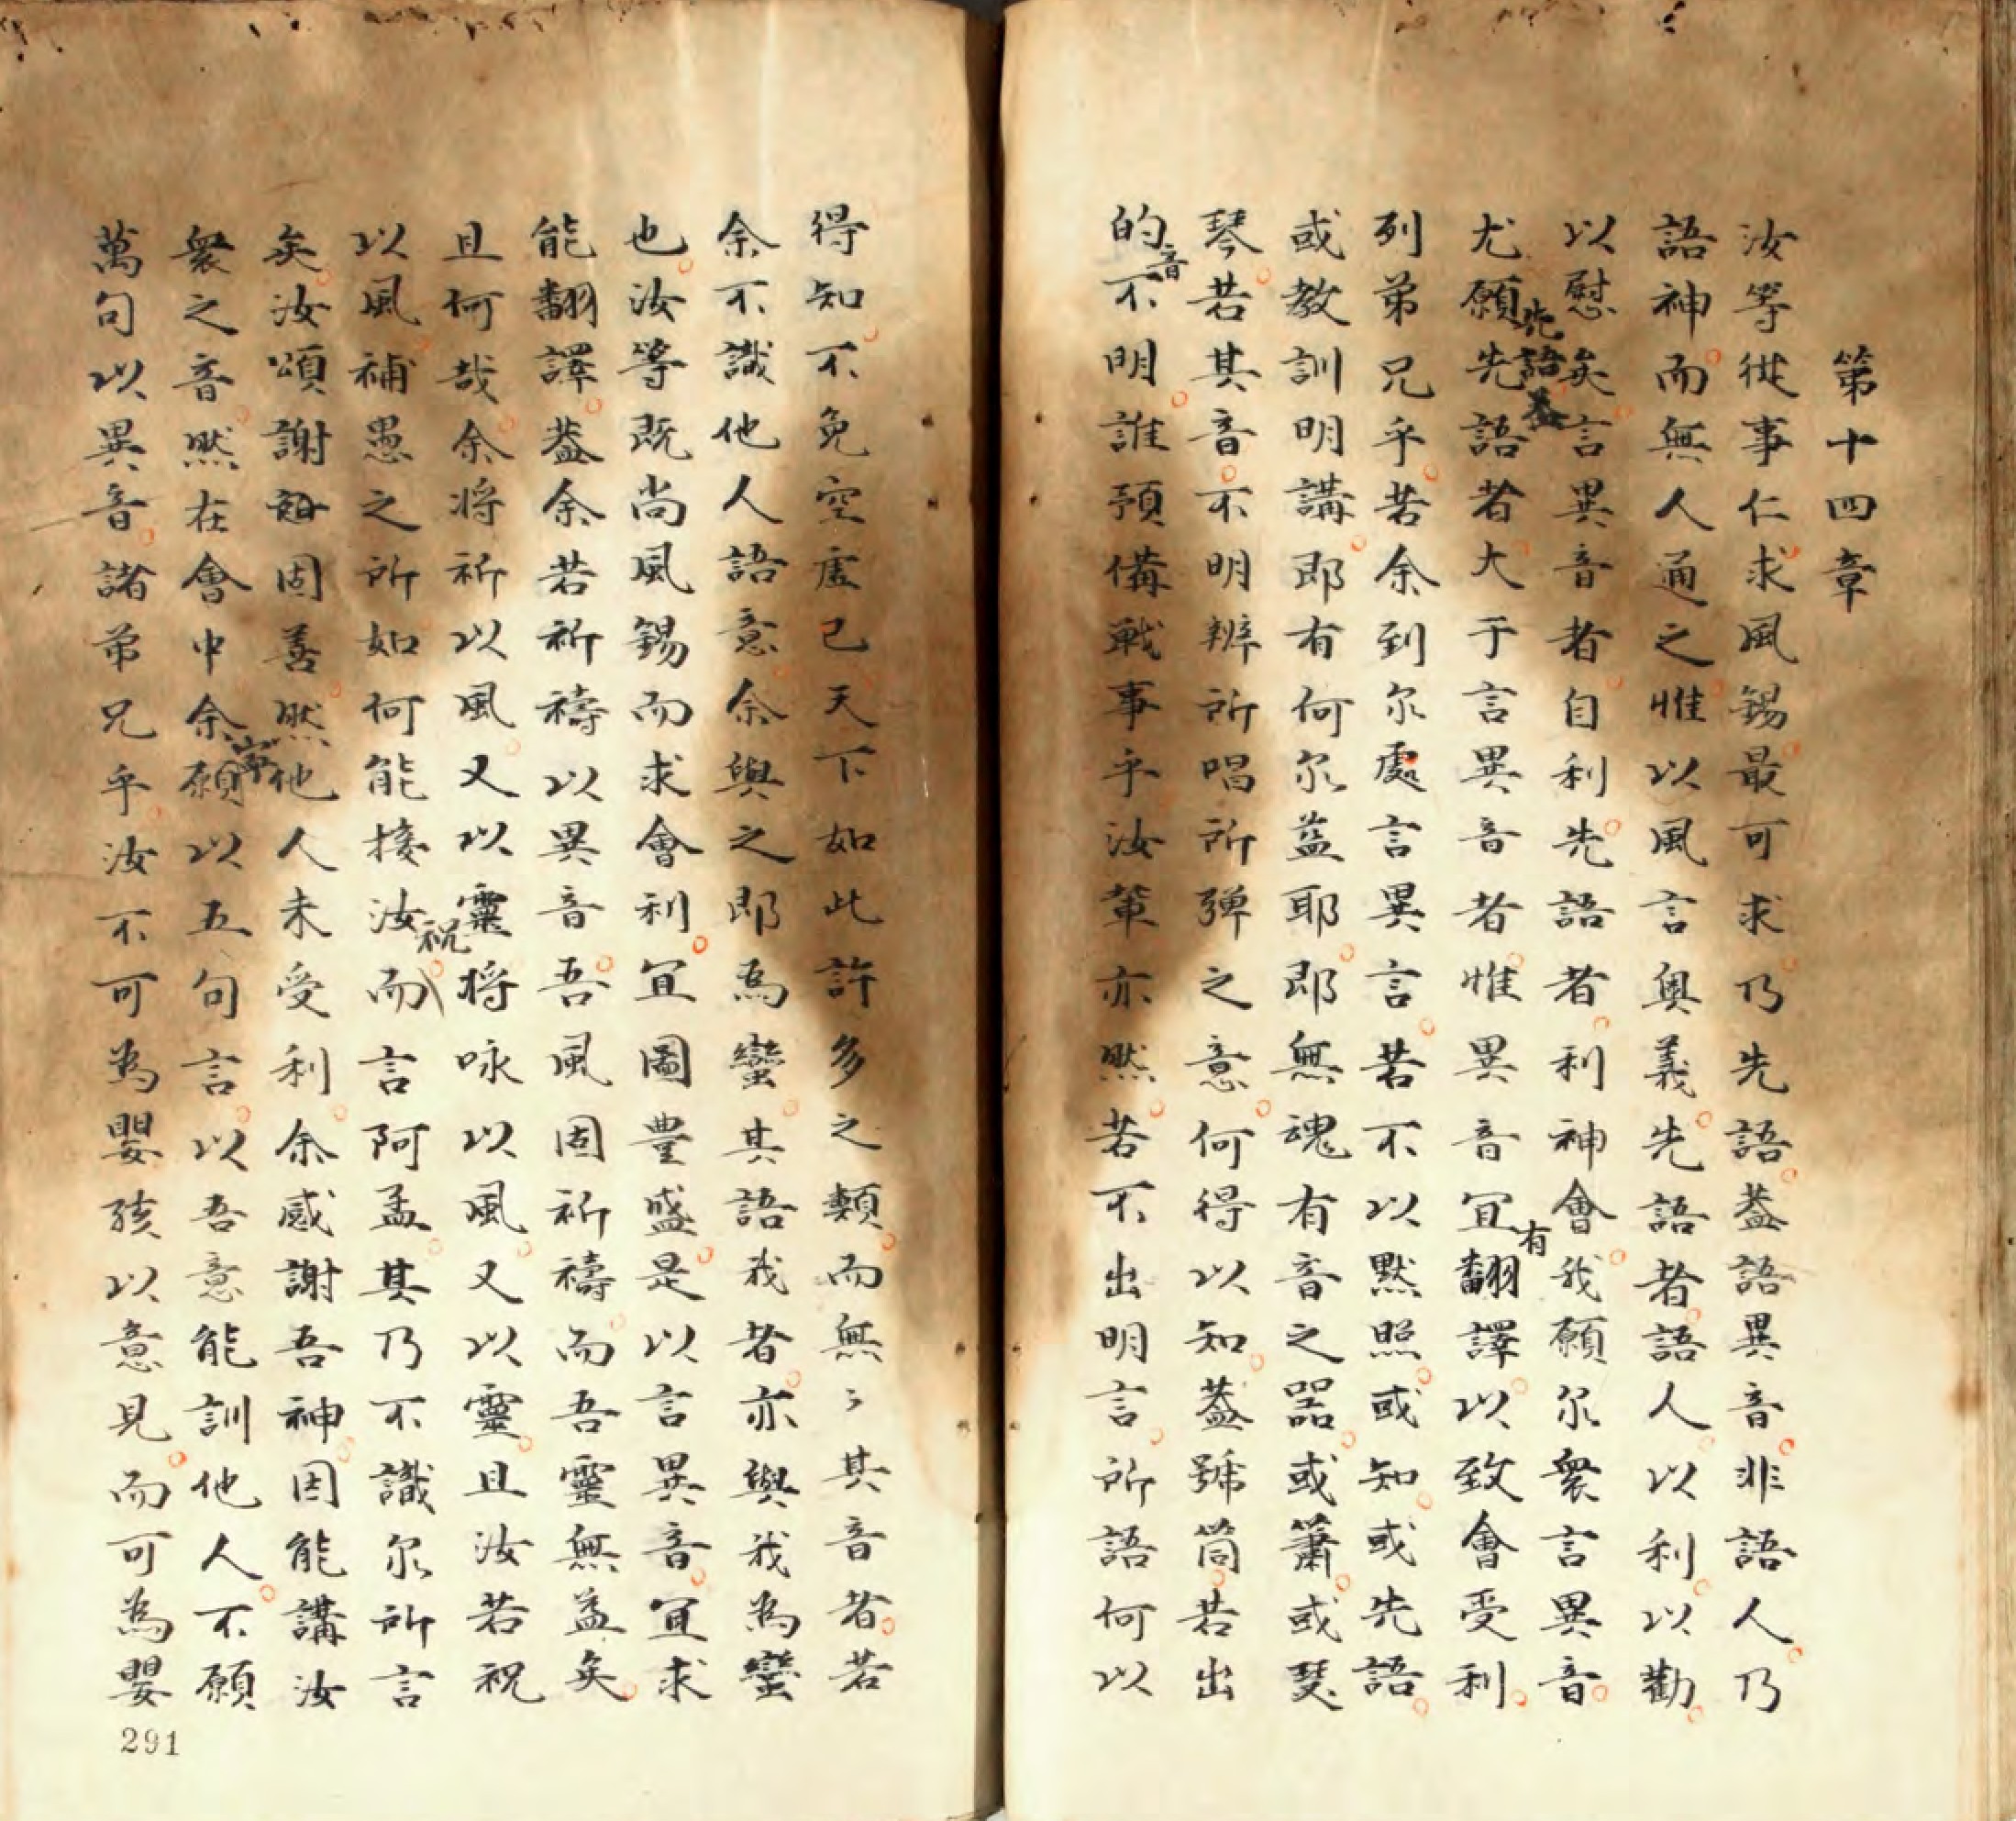 第十四章
汝等従事仁求風錫最可求乃先語葢語異音非語人乃
語神而無人通之惟以風言奥義先語者語人以利以勸
以慰矣言異音者自利先語者利神會我願尔衆言異音
尤願先語葢先語者大于言異音者惟異音宜有翻譯以致會受利
列弟兄乎若余到尔處言異言若不以黙照或知或先語
或教訓明講即有何尔益耶即無魂有音之噐或簫或琴
琴若其音不明辨所唱所弾之意何得以知葢號筒若出
的音不明誰預備戦事乎汝輩亦然若不出明言所語何以
得知不免空虛已天下如此許多之類而無〻其音者若
余不識他人語意余與之即為蠻其語我者亦與我為蠻
也汝等既尚風錫而求會利宜圖豊盛是以言異音宜求
能翻譯葢余若祈禱以異音吾風固祈禱而吾靈無益矣
且何哉余将祈以風又以靈将咏以風又以靈且汝若祝
以風補愚之所如何能接汝祝而言阿孟其乃不識尔所言
矣汝頌謝固善然他人未受利余感謝吾神因能講汝
衆之音然在會中余寧願以五句言以吾意能訓他人不願
萬句以異音諸弟兄乎汝不可為嬰孩以意見而可為嬰
291